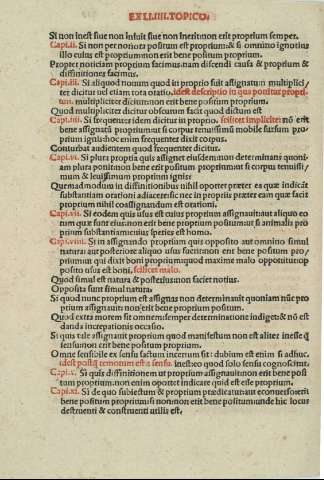 EX LI.IIII.TOPICO.
Si non inest siue non infuit siue non inerit non erit proprium semper.
Capi.ii. Si non per notiora positum est proprium: & si omnino ignotius
illo cuius est proprium non erit bene positum proprium.
Propter noticiam proprium facimus: nam discendi causa & proprium &
diffinitiones facimus.
Capi.iii. Si aliquod nomen quod in proprio fuit assignatum multiplici/
ter dicitur uel etiam tota oratio. idest descriptio in qua ponitur propri
um. multipliciter dicitur: non erit bene positum proprium.
Quod multipliciter dicitur obscurum facit quod dictum est
Capi.iiii. Si frequenter idem dicitur in proprio. scilicet implicite: nō erit
bene assignatū proprium: ut si corpus tenuissimū mobile sursum pro/
prium ignis: hoc enim frequenter dixit corpus.
Conturbat audientem quod frequenter dicitur.
Capi.vi. Si plura propria quis assignet eiusdem: non determinans quoni
am plura ponit: non bene erit positum proprium: ut si corpus tenuissi/
mum & leuissimum proprium ignis:
Quemadmodum in diffinitionibus nihil oportet præter ea quæ indicāt
substantiam orationi adiacere: sic nec in propriis præter eam quæ facit
proprium nihil coassignandum est orationi.
Capi.vii. Si eodem quis usus est cuius proprium assignauit: aut aliquo eo
rum quæ sunt eius: non erit bene proprium positum: ut si animalis pro
prium substantiam: cuius species est homo.
Capi.viii. Si in assignando proprium quis opposito aut omnino simul
natura: aut posteriore aliquo usus fuerit: non erit bene positum pro/
prium: ut qui dixit boni proprium: quod maxime malo opponitur: op
posito usus est boni. scilicet malo.
Quod simul est natura & posterius: non faciet notius.
Opposita sunt simul natura:
Si quod nunc proprium est assignas non determinauit quoniam nūc pro
prium assignauit: non erit bene proprium.
Quod extra morem fit omne: nsemper determinatione indiget: & nō est
danda increpationis occasio.
Si quis tale assignauit proprium quod manifestum non est aliter inesse q̄
sensu: non erit bene positum proprium.
Omne sensibile ex sensu factum incertum fit: dubium est enim si adhuc.
idest postq̄ remotum est a sensu. inest: eo quod solo sensu cognoscitur.
Capi.x. Si quis diffinitionem ut proprium assignauit: non erit bene posi
tum proprium: non enim oportet indicare quid est esse proprium.
Capi.xi. Si de quo subiectum & proprium prædicatur: aut econuerso: erit
bene positum proprium: si non: non erit bene positum: unde hic locus
destruenti & construenti utilis est.